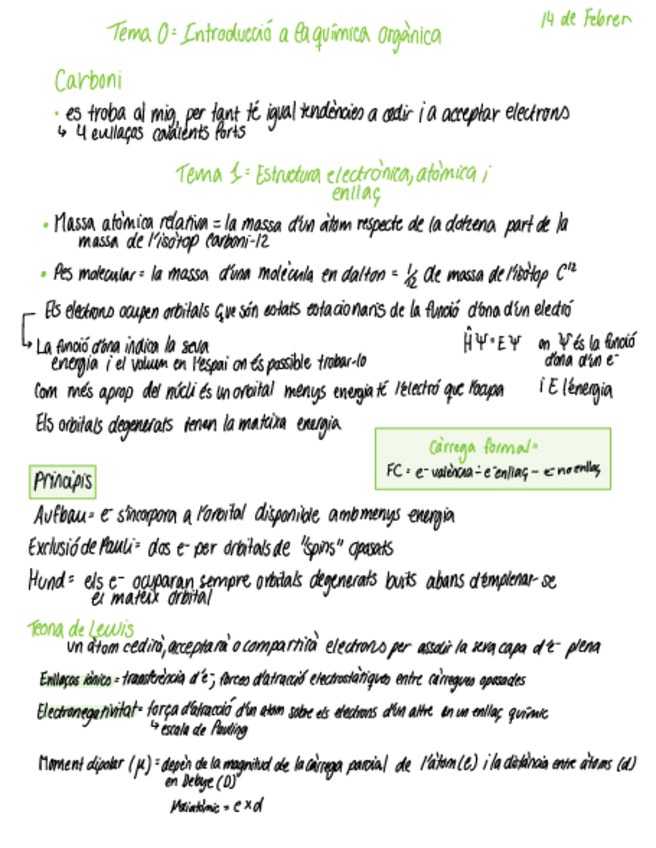 14 de Febrer
Tema 0= Introducció a la química orgànica
Carboni
• es troba al mig, per tant té igual tendències a cedir i a acceptar electrons
↳ 4 enllaços covalents forts
Tema 1= Estructura electrònica, atòmica i
enllaç
• Massa atòmica relativa = la massa d'un àtom respecte de la dotzena part de la
massa de l'isòtop carboni-12
• Pes molecular = la massa d'una molècula en dalton = 1/12 de massa de l'isòtop C¹²
Els electrons ocupen orbitals que són estats estacionaris de la funció d'ona d'un electró
↳ La funció d'ona indica la seva
energia i el volum en l'espai on és possible trobar-lo
ĤΨ=EΨ on Ψ és la funció
d'ona d'un e⁻
i E l'energia
Com més aprop del nucli és un orbital menys energia té l'electró que l'ocupa
Els orbitals degenerats tenen la mateixa energia
Càrrega formal=
FC = e⁻ valència - e⁻ enllaç - e⁻ no enllaç
Principis
Aufbau= e⁻ s'incorpora a l'orbital disponible amb menys energia
Exclusió de Pauli= dos e⁻ per orbitals de "spins" oposats
Hund= els e⁻ ocuparan sempre orbitals degenerats buits abans d'emplenar-se
el mateix orbital
Teoria de Lewis
un àtom cedirà, acceptarà o compartirà electrons per assolir la seva capa d'e⁻ plena
Enllaços iònics= transferència d'e⁻, forces d'atracció electrostàtiques entre càrregues oposades
Electronegativitat= força d'atracció d'un àtom sobre els electrons d'un altre en un enllaç químic
↳ escala de Pauling
Moment dipolar (μ) = depèn de la magnitud de la càrrega parcial de l'àtom (e) i la distància entre àtoms (d)
en Debye (D)
= e x d